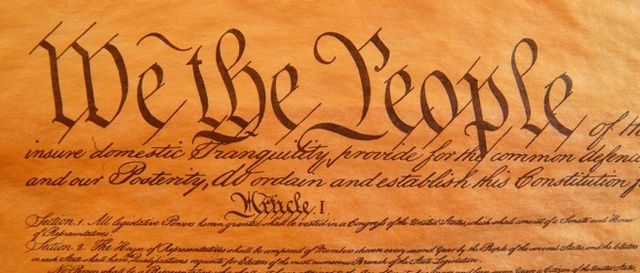 We the People of th
insure domestic Tranquility, provide for the common defenc
and our Posterity, do ordain and establish this Constitution f
Article. I
Section. 1. All legislative Powers herein granted shall be vested in a Congress of the United States, which shall consist of a Senate and House
of Representatives.
Section. 2. The House of Representatives shall be composed of Members chosen every second Year by the People of the several States, and the Electors
in each State shall have Qualifications requisite for Electors of the most numerous Branch of the State Legislature.
No Person shall be a Representative who shall not